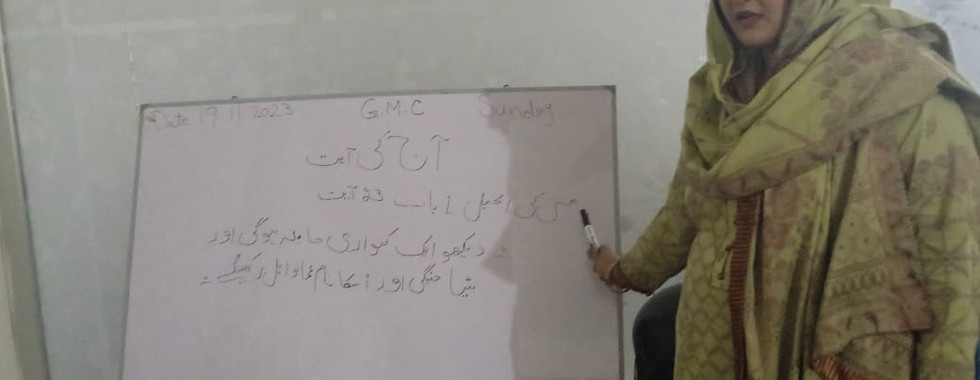 Date 19 11 2023 G.M.C Sunday
آج کی آیت
متی کی انجیل 1 باب 23 آیت
دیکھو ایک کنواری حاملہ ہوگی اور
بیٹا جنیگی اور اسکا نام عماوائل رکھینگے۔